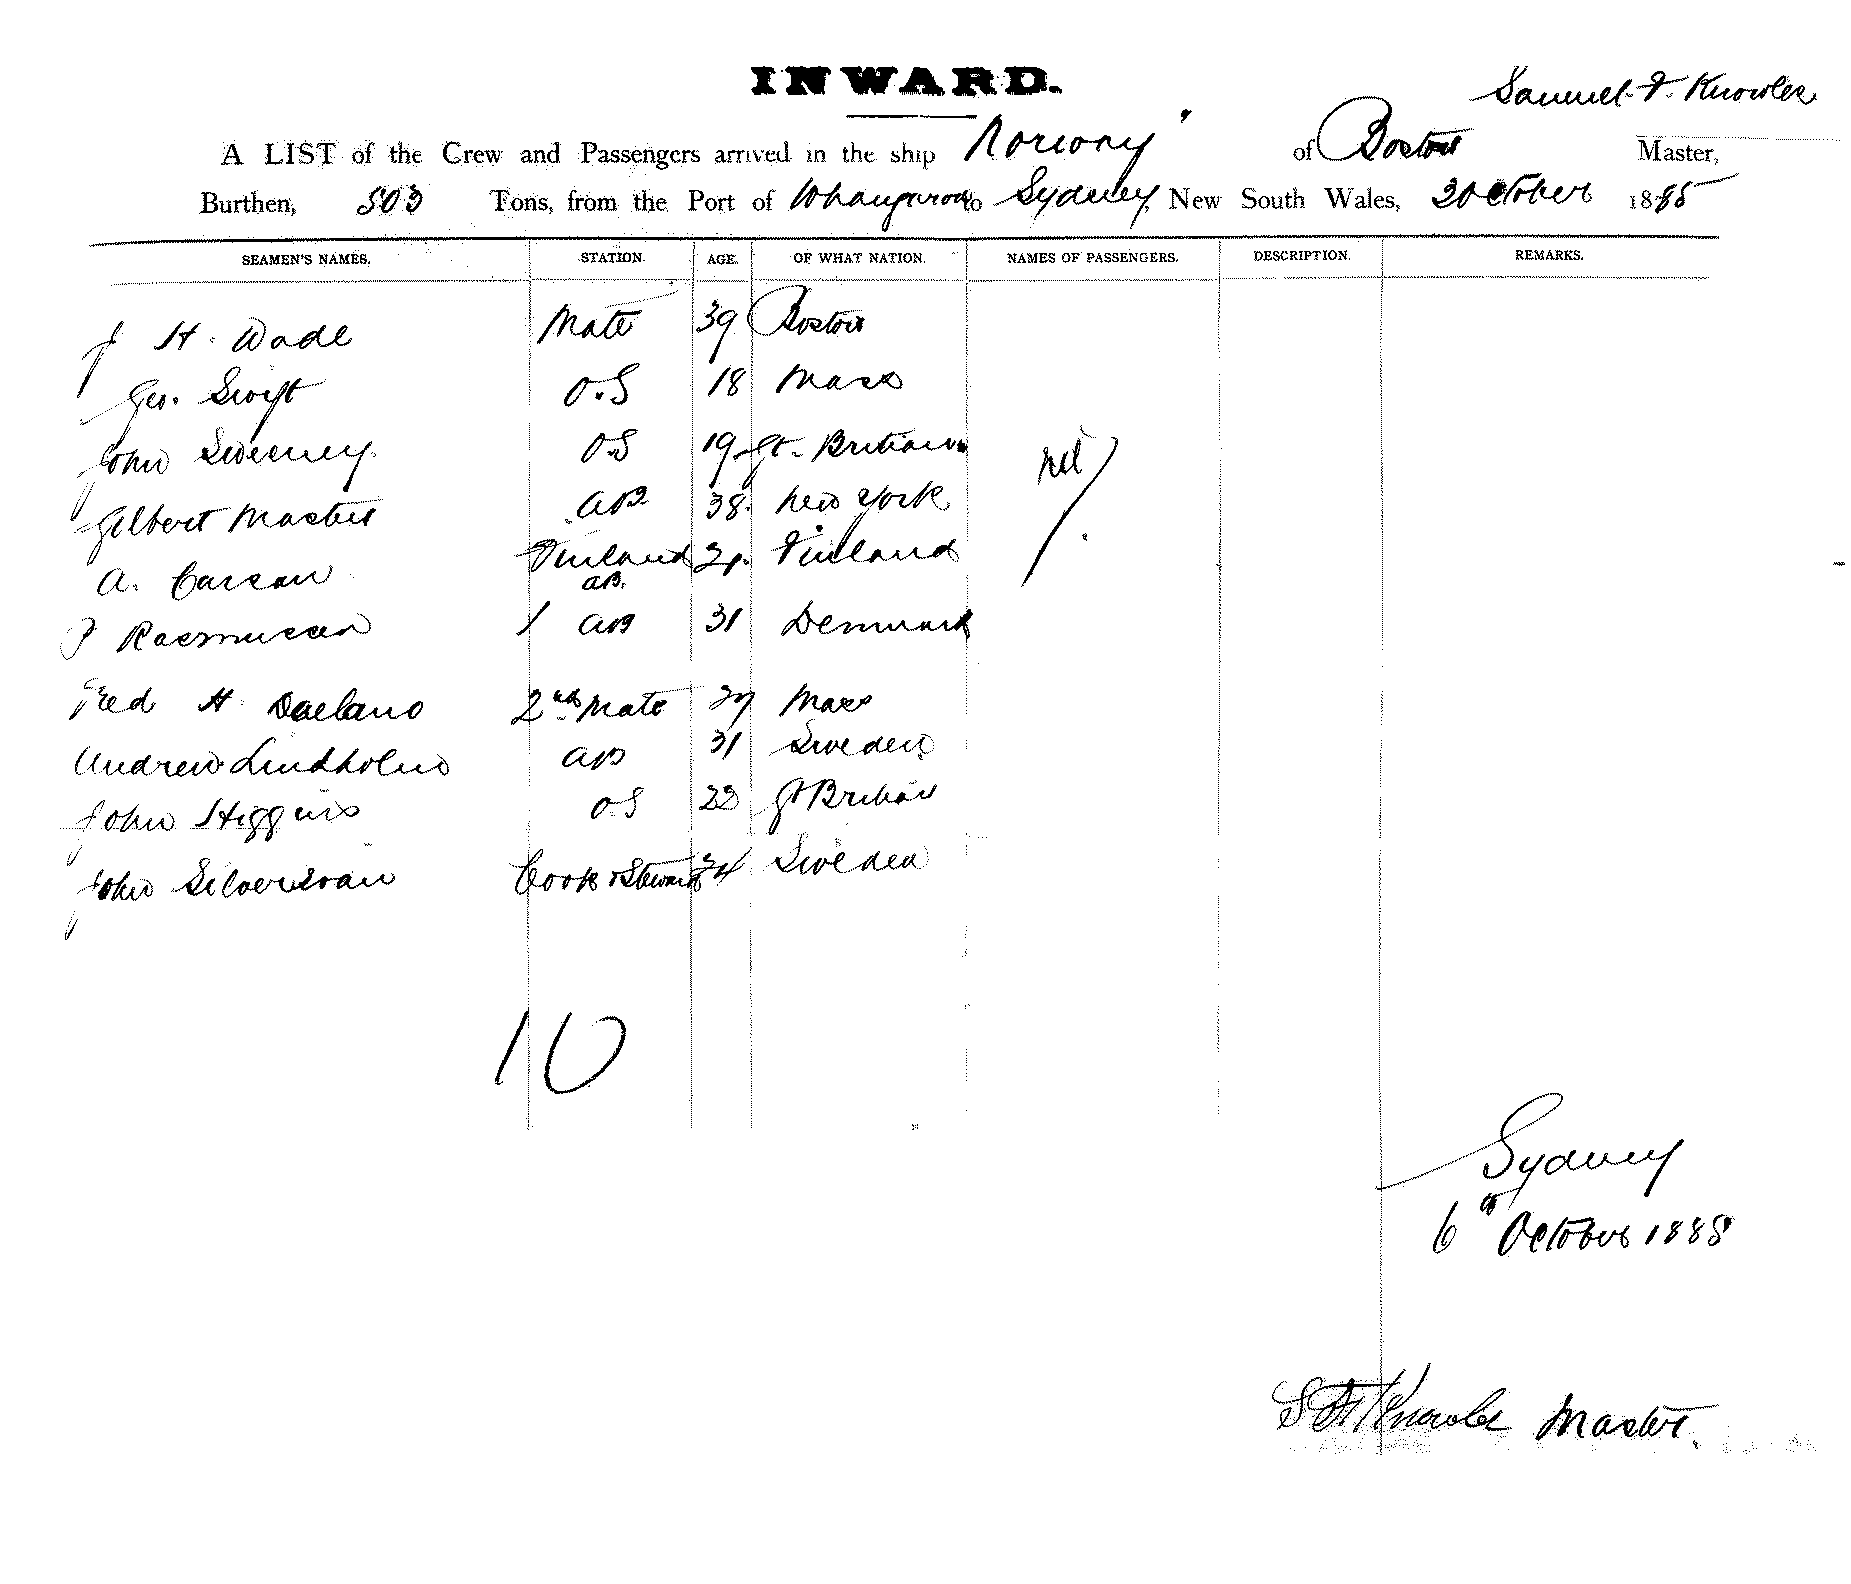 INWARD.
Samuel F. Knowles
A LIST of the Crew and Passengers arrived in the ship of Boston Master,
Burthen, 503 Tons, from the Port of Whangaroa to Sydney, New South Wales, October 1885
SEAMEN'S NAMES. STATION. AGE. OF WHAT NATION. NAMES OF PASSENGERS. DESCRIPTION. REMARKS.
J H. Wade Mate 39 Boston
Geo. Swift O.S 18 Mass
John Sweeney O.S 19 Gt. Britian
nil
Gilbert Masters AB 38 New York
A. Carson Finland Finland
AB.
P Rasmussen 1 AB 31 Denmark
Fred H 2nd Mate Mass
Andrew Lindholm AB 31 Sweden
John Higgins OS 22 Gt Britian
John Cook & Steward 34 Sweden
10
Sydney
6th October 1885
S F Knowles Master.